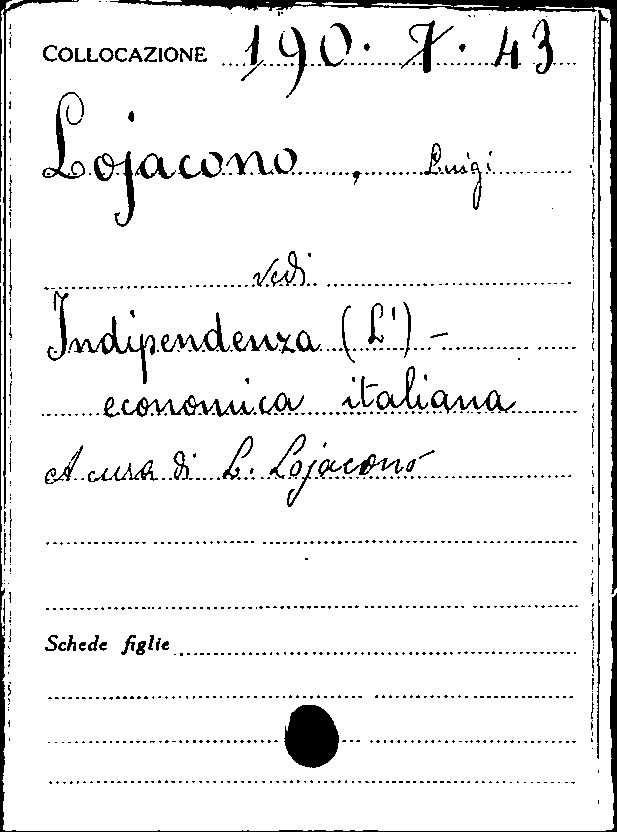 COLLOCAZIONE 190. 7. 43
Lojacono, Luigi
vedi
Indipendenza (L') -
economica italiana
A cura di L. Lojacono
Schede figlie